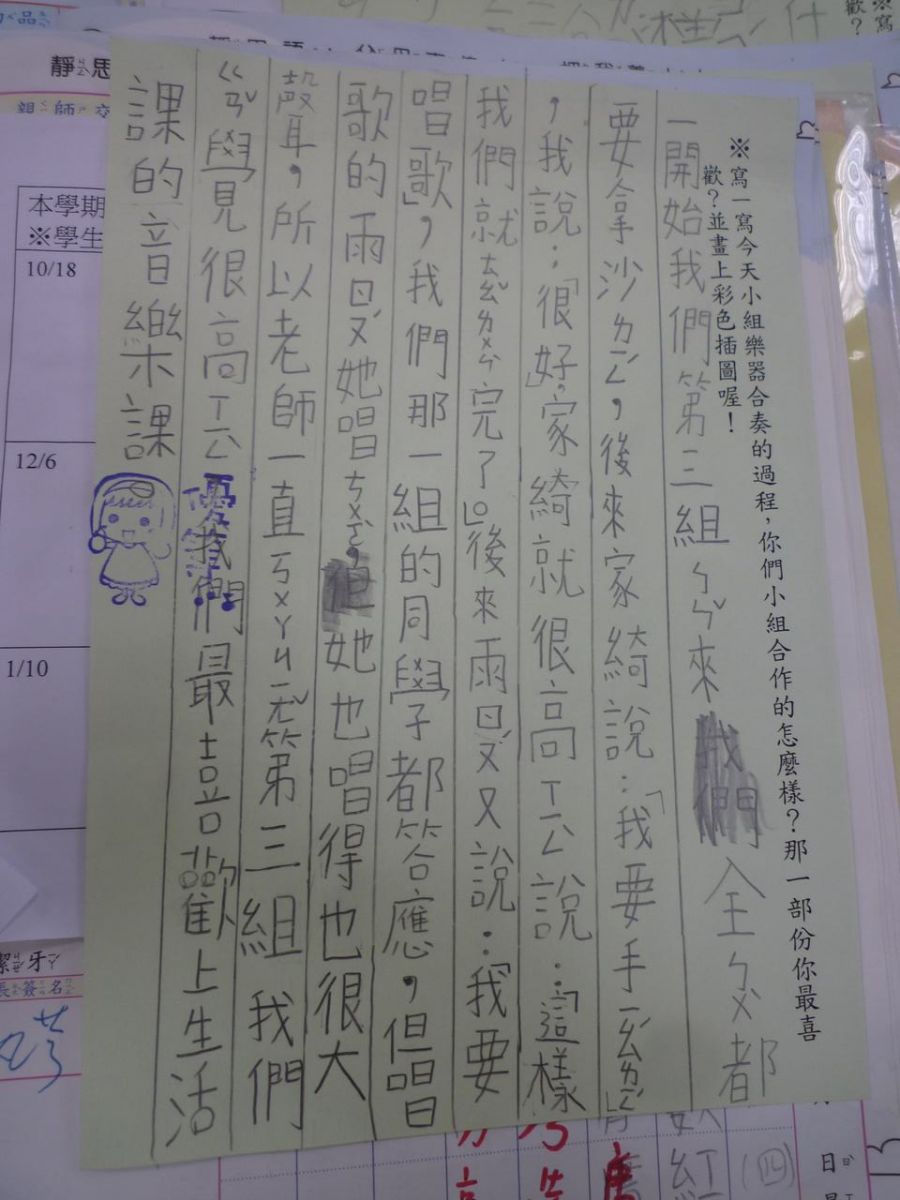 ※寫一寫今天小組樂器合奏的過程，你們小組合作的怎麼樣？那一部份你最喜
歡？並畫上彩色插圖喔！
一開始我們第三組ㄣㄣˇ來我們全ㄅㄨˋ都
要拿沙ㄌㄧㄥˊ，後來家綺說：「我要手ㄧㄠˊㄌㄧㄥˊ」
，我說：「很好」，家綺就很高ㄒㄧㄥˋ說：「這樣
我們就ㄊㄠˇㄌㄨㄣˋ完了」。後來雨ㄖㄡˊ又說：「我要
唱歌」，我們那一組的同學都答應，但唱
歌的雨ㄖㄡˊ她唱ㄘㄨㄛˋ，但她也唱得也很大
聲，所以老師一直ㄎㄨㄚㄐㄧㄤˇ第三組我們
ㄍㄢˇ覺很高ㄒㄧㄥˋ我們最喜歡上生活
課的音樂課
優
靜思
親師交
本學期
※學生
10/18
12/6
1/10
潔牙
長簽名
(四)